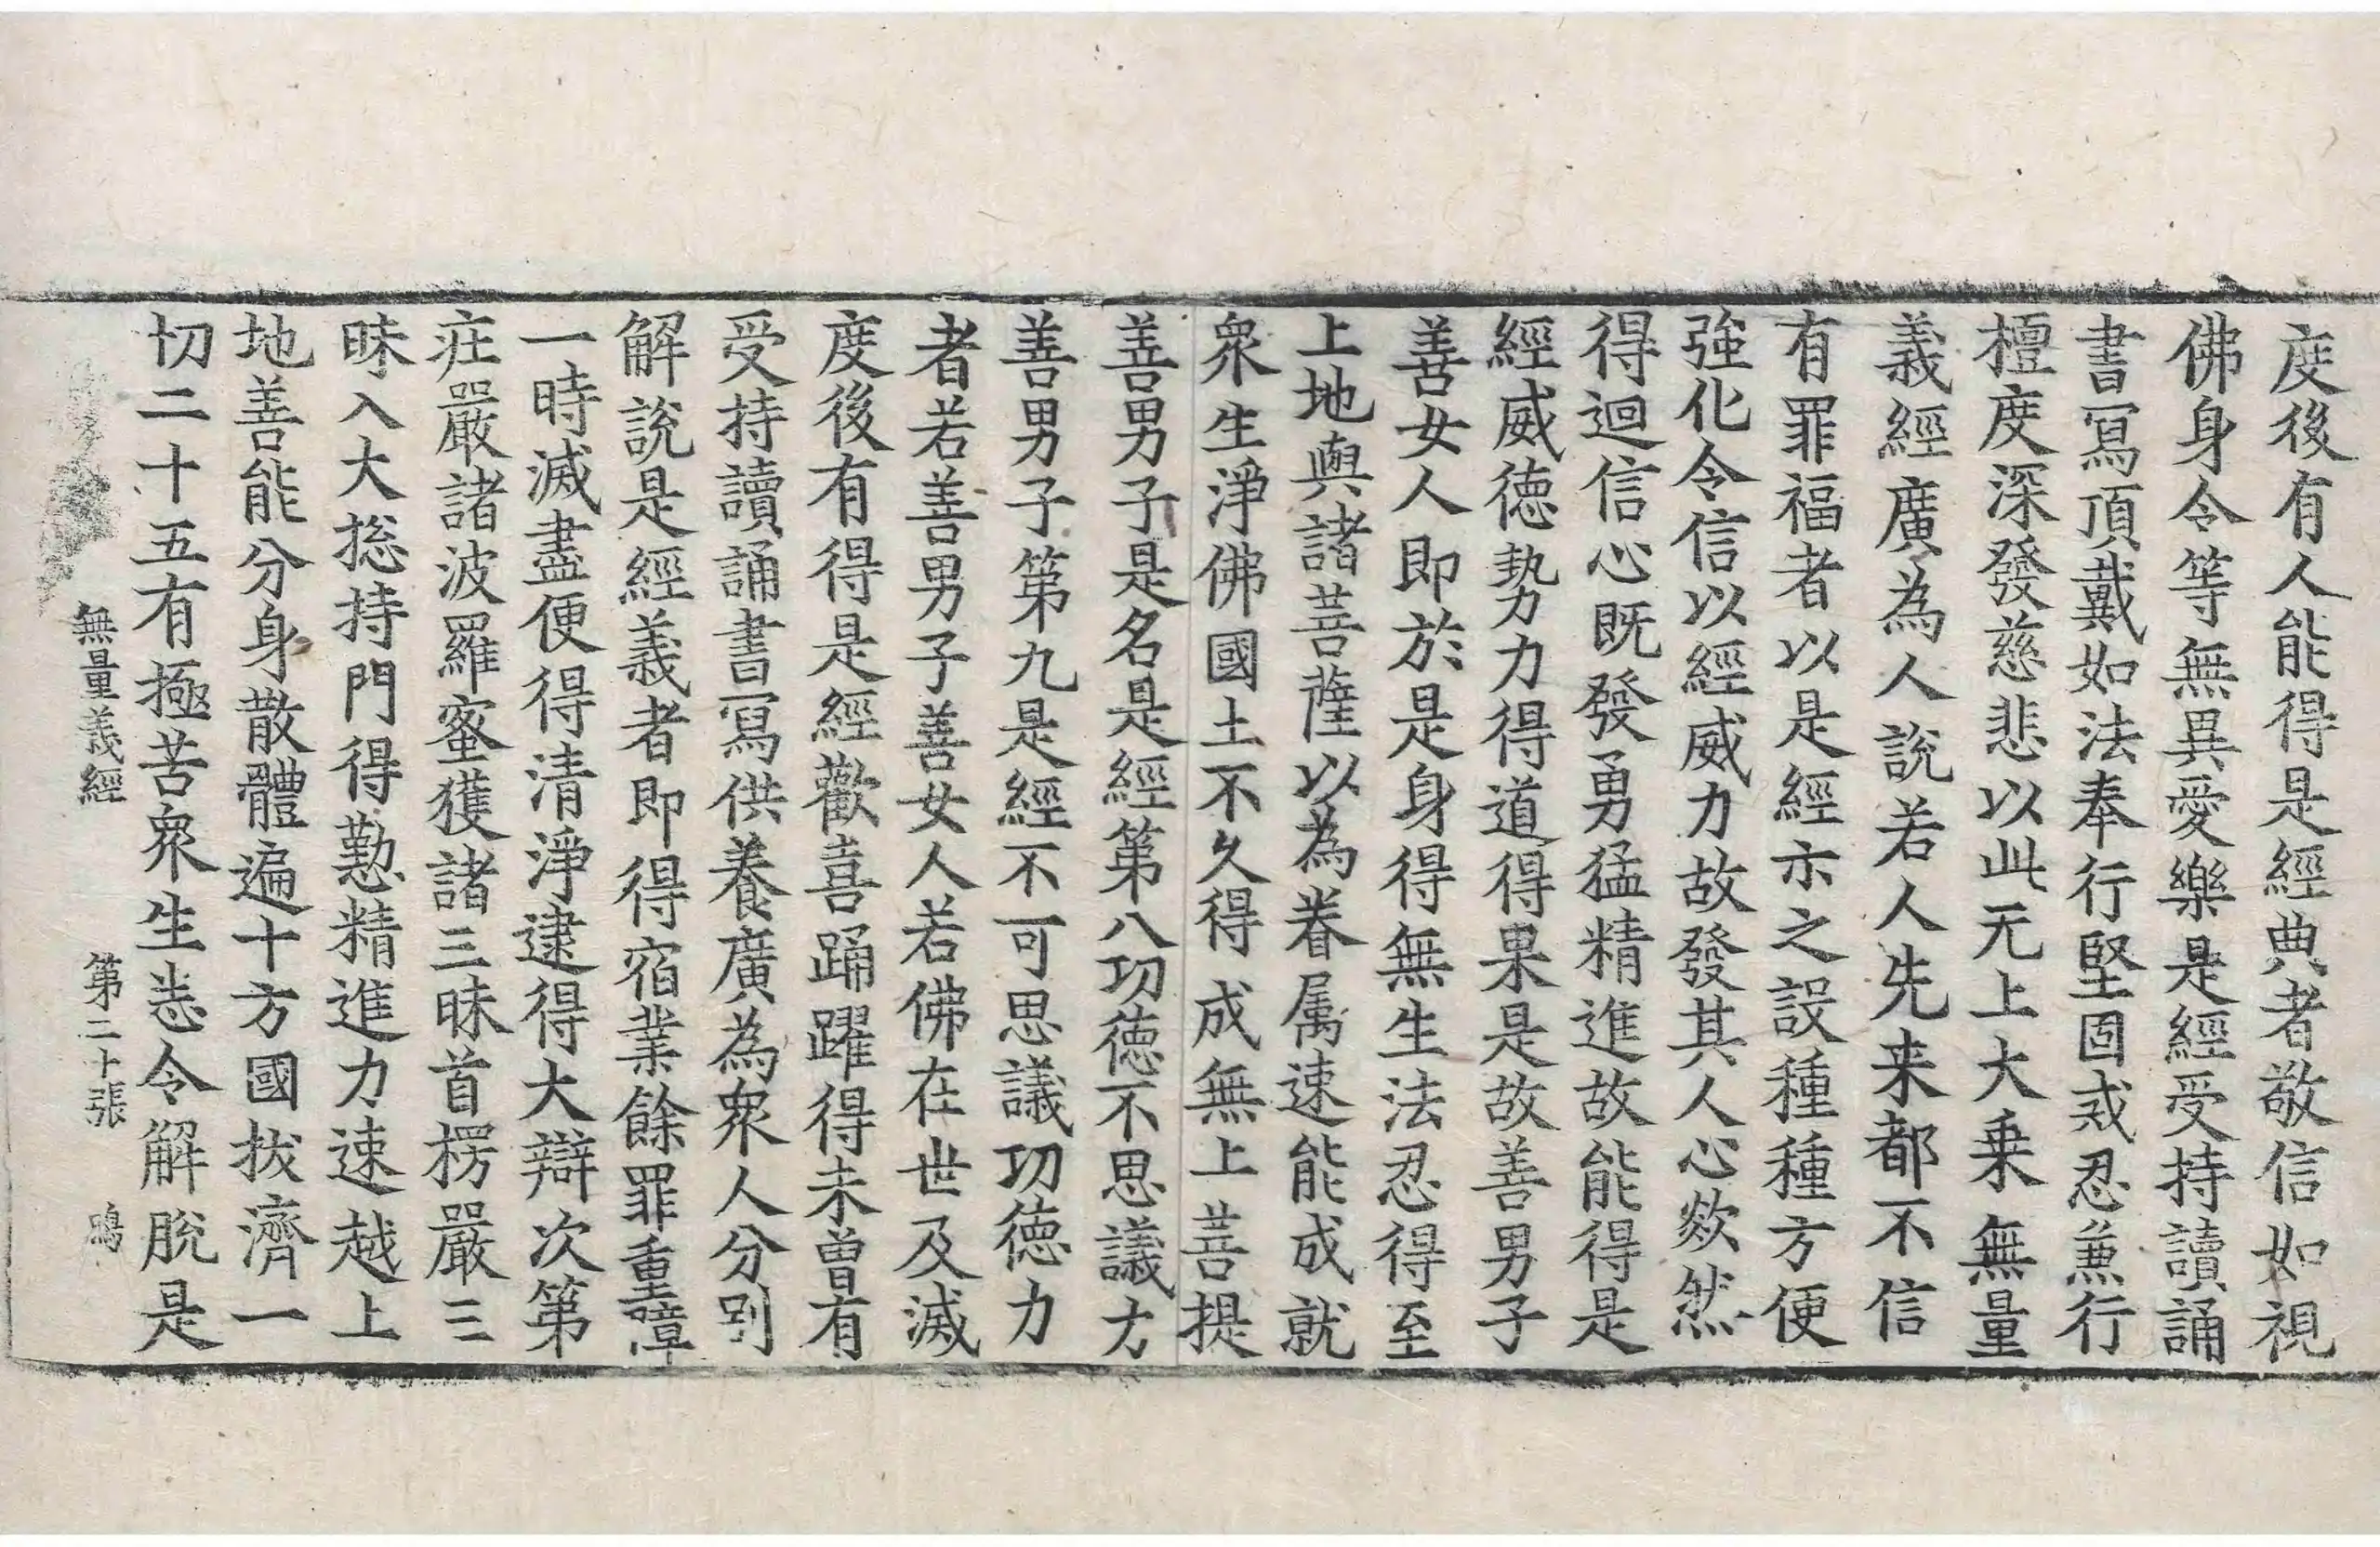 度後有人能得是經典者敬信如視
佛身令等無異愛樂是經受持讀誦
書寫頂戴如法奉行堅固戒忍兼行
檀度深發慈悲以此无上大乗無量
義經廣為人說若人先来都不信
有罪福者以是經示之設種種方便
強化令信以經威力故發其人心欻然
得迴信心既發勇猛精進故能得是
經威德勢力得道得果是故善男子
善女人即於是身得無生法忍得至
上地與諸菩薩以為眷属速能成就
衆生淨佛國土不久得成無上菩提
善男子是名是經第八功德不思議力
善男子第九是經不可思議功德力
者若善男子善女人若佛在世及滅
度後有得是經歡喜踊躍得未曽有
受持讀誦書寫供養廣為衆人分別
解說是經義者即得宿業餘罪重障
一時滅盡便得清淨逮得大辯次第
庄嚴諸波羅蜜獲諸三昧首楞嚴三
昧入大捴持門得懃精進力速越上
地善能分身散體遍十方國拔濟一
切二十五有極苦衆生悉令解脫是
無量義經　第二十張　鳴